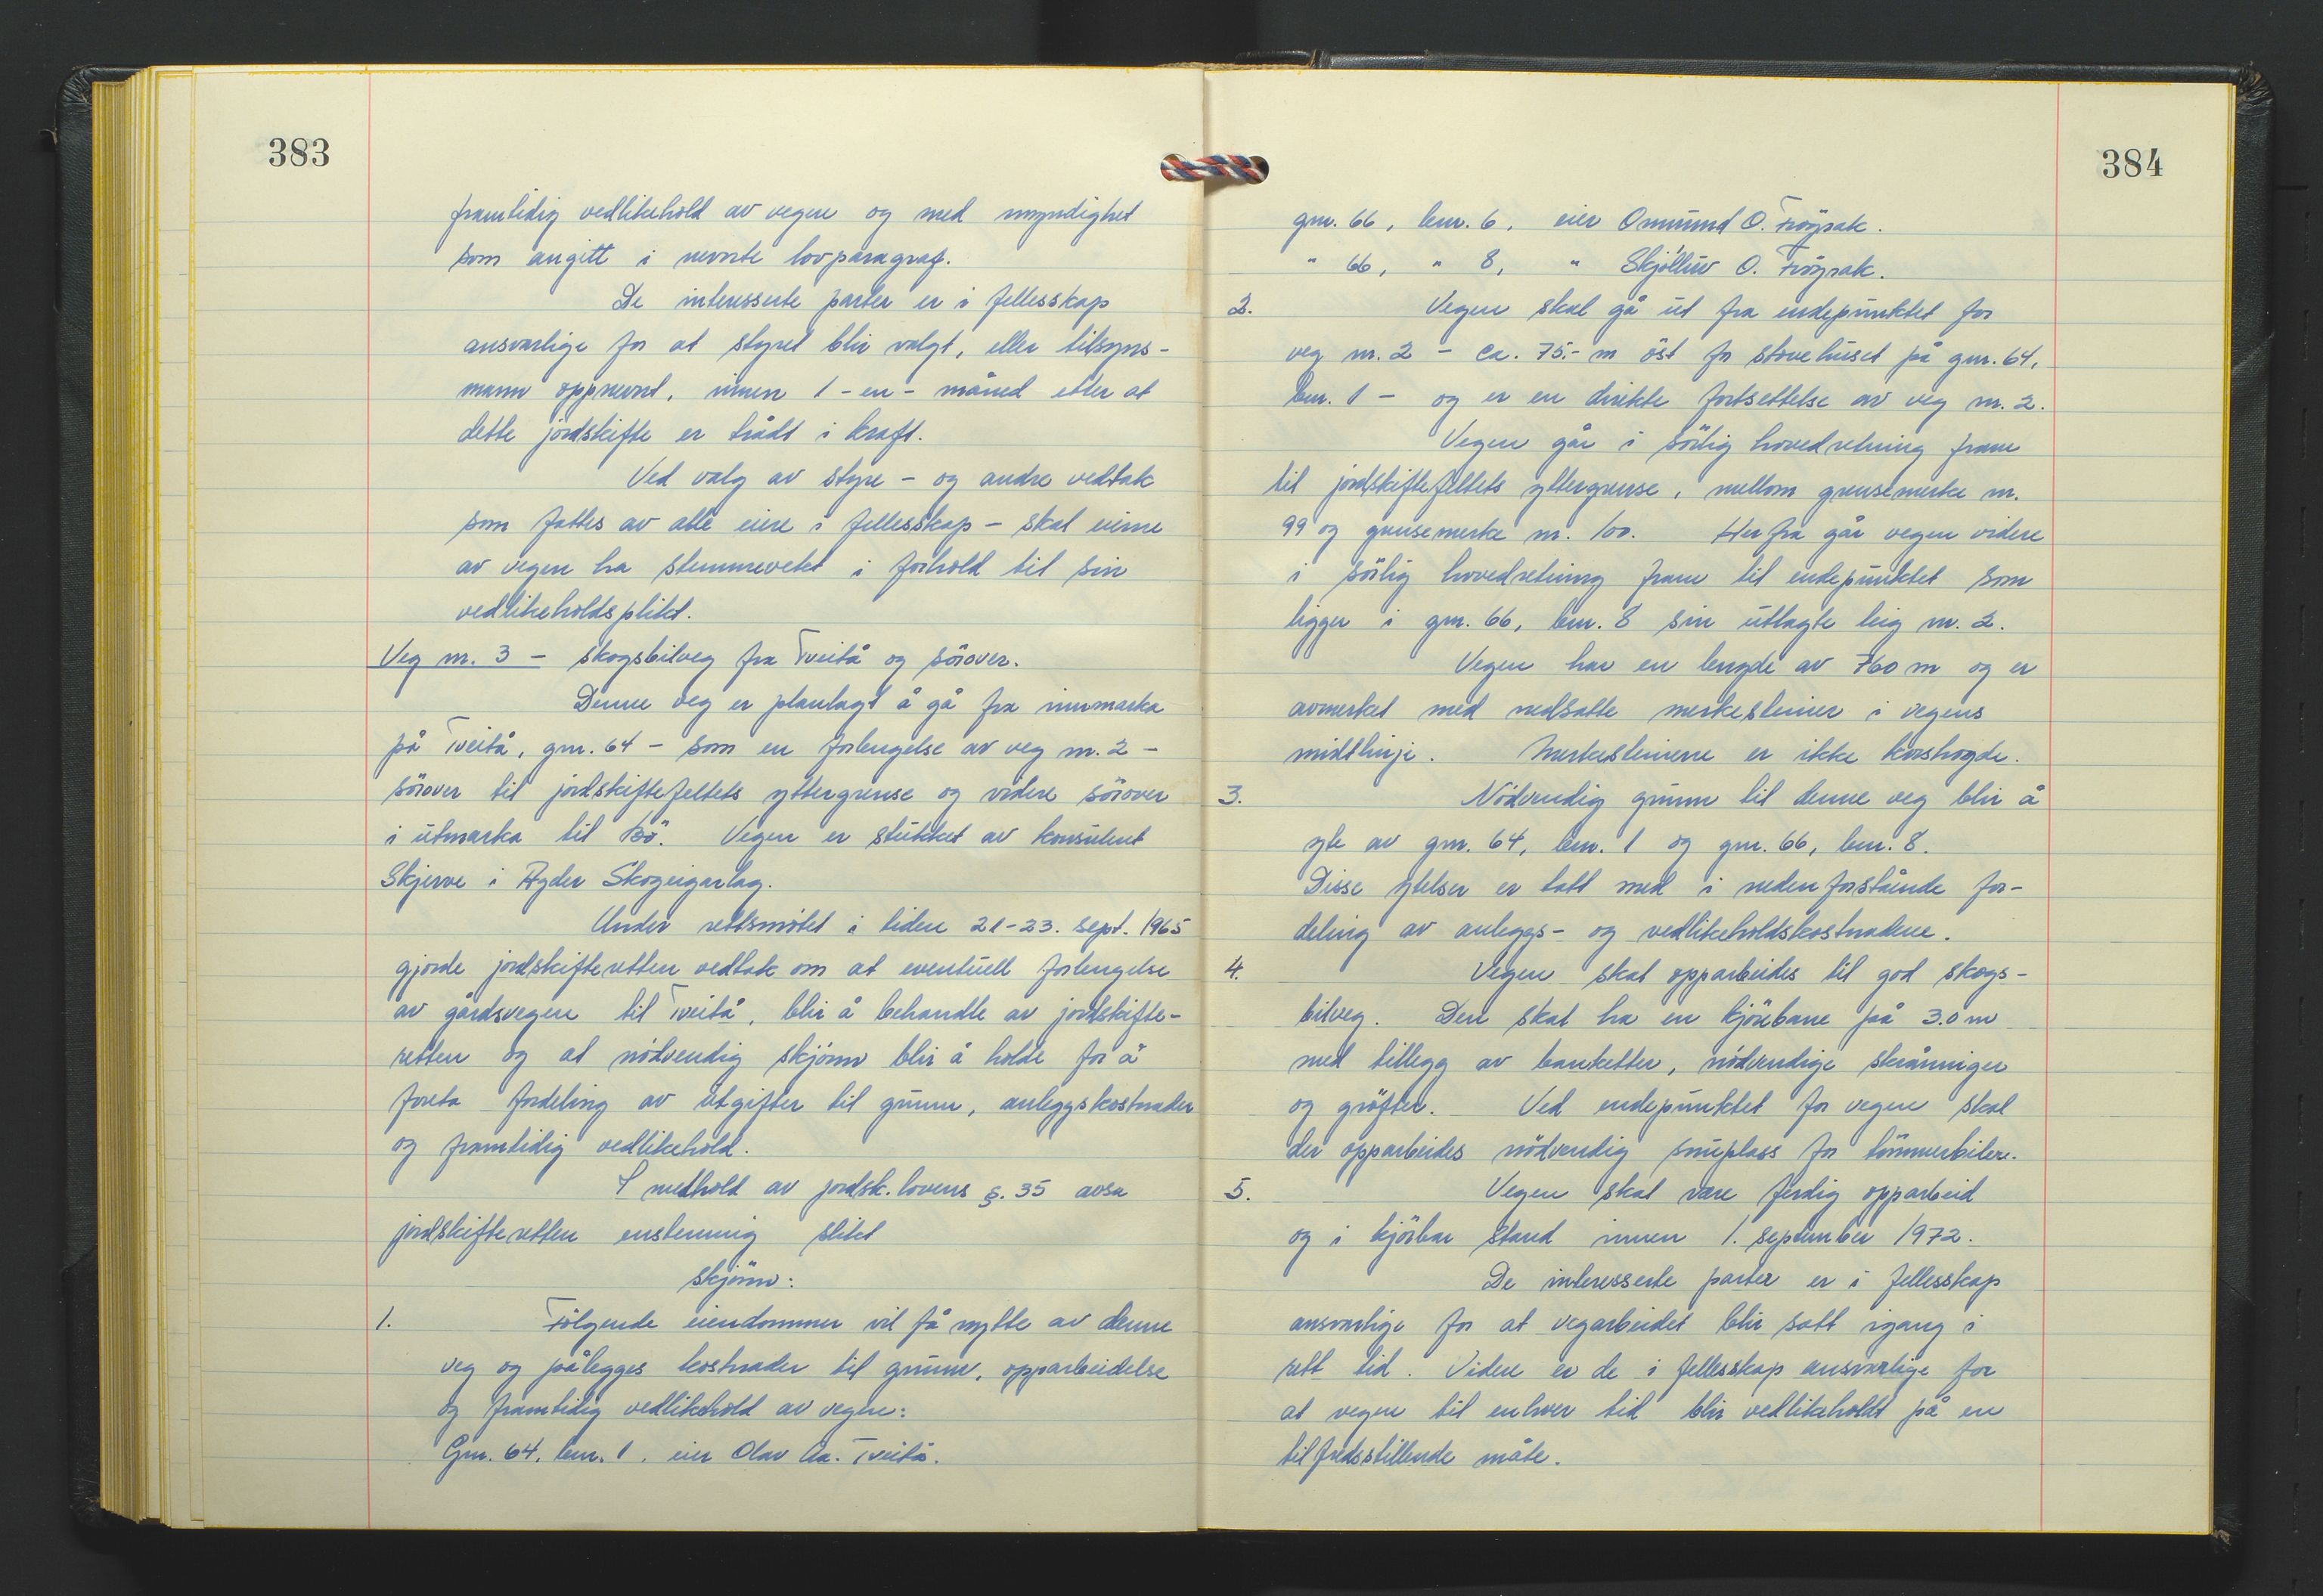 383
framtidig vedlikehold av vegen og med myndighet
som angitt i nevnte lovparagraf.
De interesserte parter er i fellesskap
ansvarlige for at styret blir valgt, eller tilsyns-
mann oppnevnt, innen 1 - en - måned etter at
dette jordskifte er trådt i kraft.
Ved valg av styre - og andre vedtak
som fattes av alle eiere i fellesskap - skal eierne
av vegen ha stemmevekt i forhold til sin
vedlikeholdsplikt.
Veg nr. 3 - skogsbilveg fra Tveitå og sörover.
Denne veg er planlagt å gå fra innmarka
på Tveitå, gnr. 64 - som en forlengelse av veg nr. 2 -
sörover til jordskiftefeltets yttergrense og videre sörover
i utmarka til Bö. Vegen er stukket av konsulent
Skjerve i Agder Skogeigarlag.
Under rettsmötet i tiden 21-23. sept. 1965
gjorde jordskifteretten vedtak om at eventuell forlengelse
av gårdsvegen til Tveitå, blir å behandle av jordskifte-
retten og at nödvendig skjönn blir å holde for å
foreta fordeling av utgifter til grunn, anleggskostnader
og framtidig vedlikehold.
I medhold av jordsk.lovens §. 35 avsa
jordskifteretten enstemmig slikt
skjönn:
1. Fölgende eiendommer vil få nytte av denne
veg og pålegges kostnader til grunn, opparbeidelse
og framtidig vedlikehold av vegen:
Gnr. 64, bnr. 1, eier Olav Aa. Tveitå.
384
gnr. 66, bnr. 6, eier Ommund O. Fröysak.
" 66, " 8, " Skjölluv O. Fröysak.
2. Vegen skal gå ut fra endepunktet for
veg nr. 2 - ca. 75.- m öst for stovehuset på gnr. 64,
bnr. 1 - og er en direkte fortsettelse av veg nr. 2.
Vegen går i sörlig hovedretning fram
til jordskiftefeltets yttergrense, mellom grensemerke nr.
99 og grensemerke nr. 100. Herfra går vegen videre
i sörlig hovedretning fram til endepunktet som
ligger i gnr. 66, bnr. 8 sin utlagte teig nr. 2.
Vegen har en lengde av 760 m og er
avmerket med nedsatte merkesteiner i vegens
midtlinje. Merkesteinene er ikke korshogde.
3. Nödvendig grunn til denne veg blir å
yte av gnr. 64, bnr. 1 og gnr. 66, bnr. 8.
Disse ytelser er tatt med i nedenforstående for-
deling av anleggs- og vedlikeholdskostnadene.
4. Vegen skal opparbeides til god skogs-
bilveg. Den skal ha en kjörebane på 3.0 m
med tillegg av banketter, nödvendige skråninger
og gröfter. Ved endepunktet for vegen skal
der opparbeides nödvendig snuplass for tömmerbiler.
5. Vegen skal være ferdig opparbeid
og i kjörbar stand innen 1. september 1972.
De interesserte parter er i fellesskap
ansvarlige for at vegarbeidet blir satt igang i
rett tid. Videre er de i fellesskap ansvarlige for
at vegen til enhver tid blir vedlikeholdt på en
tilfredsstillende måte.